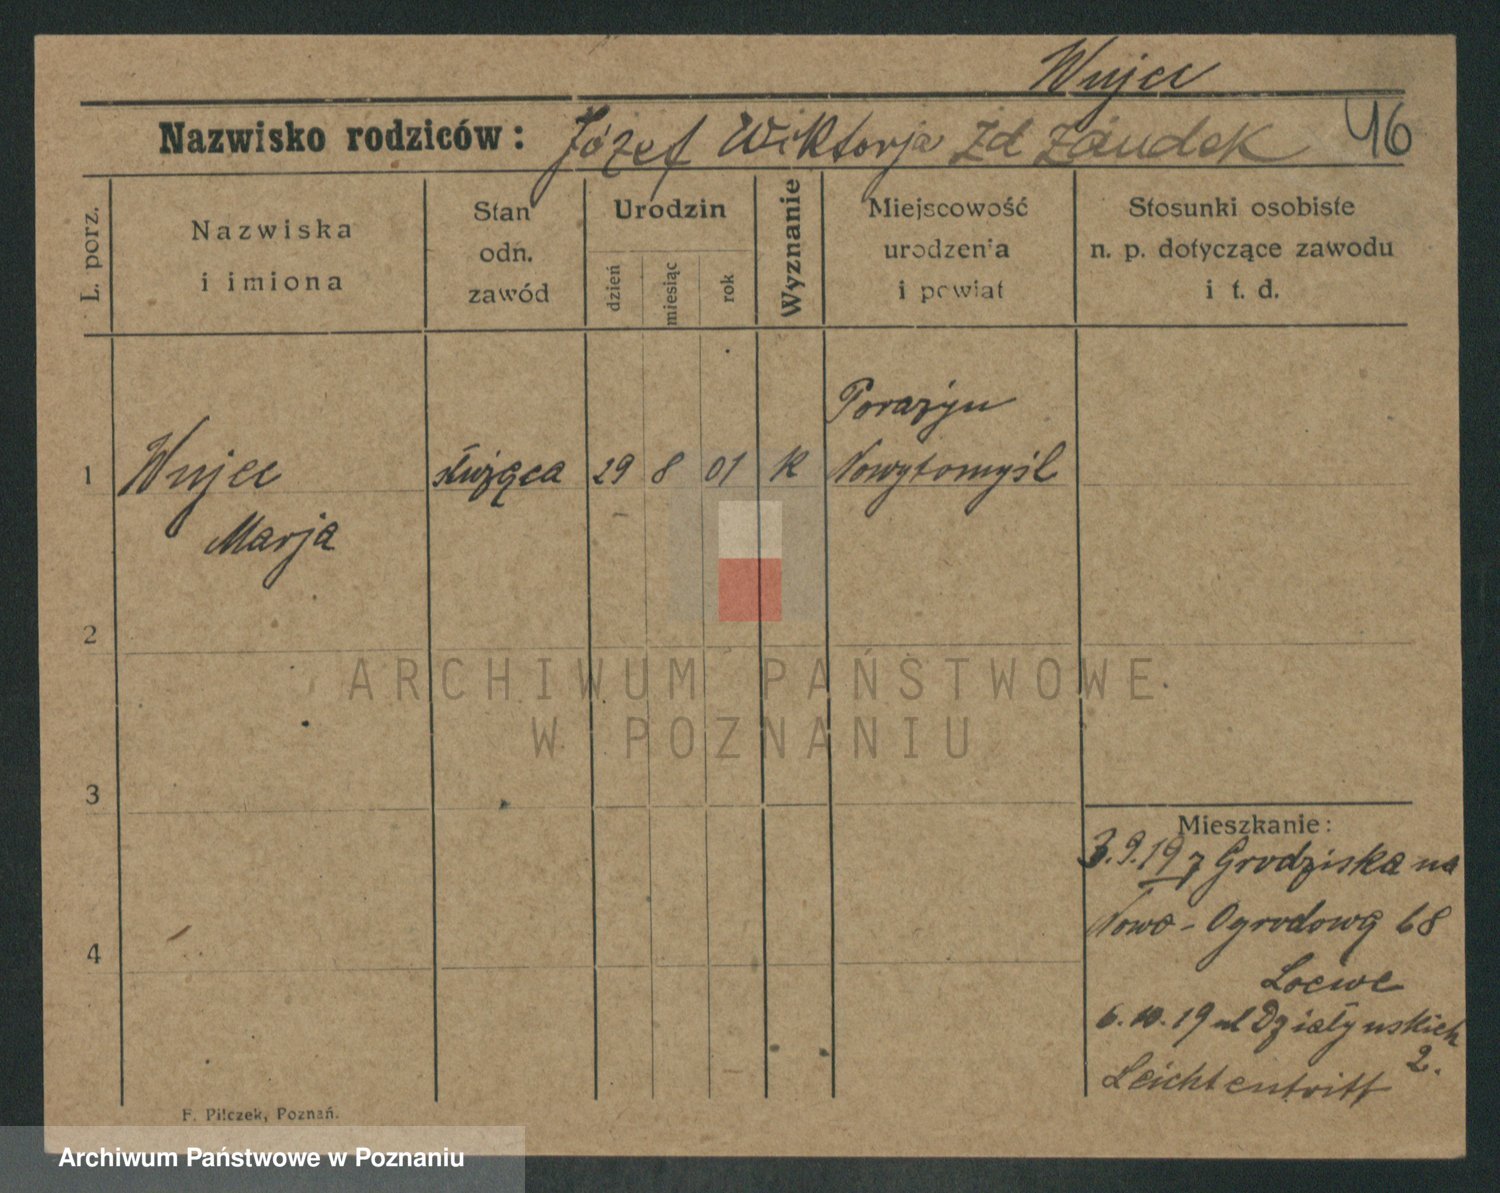 Wujec
Nazwisko rodziców: Józef Wiktorja zd 46
L. porz.
Nazwiska
i imiona
Stan
odn.
zawód
Urodzin
dzień
miesiąc
rok
Wyznanie
Miejscowość
urodzenia
i powiat
Stosunki osobiste
n. p. dotyczące zawodu
i t. d.
Porazyn
1 Wujec służąca 29 8 01 k Nowytomyśl
Marja
2
ARCHIWUM PAŃSTWOWE
W POZNANIU
3
Mieszkanie:
3.9.19 z Grodziska na
4 Nowo-Ogrodową 68
Loewe
6.10.19 ul Działyńskich
2.
Leichtentritt
F. Pilczek, Poznań.
Archiwum Państwowe w Poznaniu